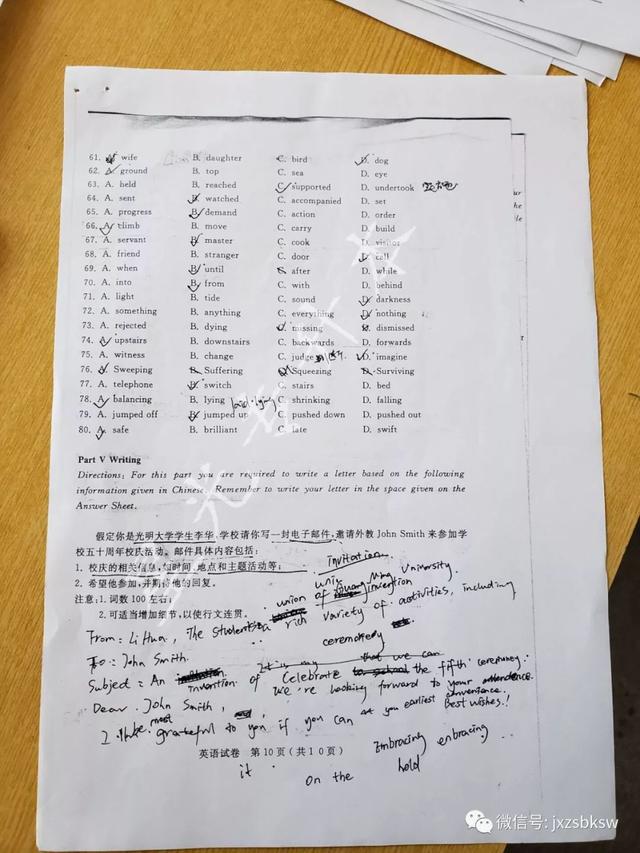 61. A. wife B. daughter C. bird D. dog
62. A. ground B. top C. sea D. eye
63. A. held B. reached C. supported D. undertook
64. A. sent B. watched C. accompanied D. set
65. A. progress B. demand C. action D. order
66. A. climb B. move C. carry D. build
67. A. servant B. master C. cook D. visitor
68. A. friend B. stranger C. door D. cell
69. A. when B. until C. after D. while
70. A. into B. from C. with D. behind
71. A. light B. tide C. sound D. darkness
72. A. something B. anything C. everything D. nothing
73. A. rejected B. dying C. missing D. dismissed
74. A. upstairs B. downstairs C. backwards D. forwards
75. A. witness B. change C. judge D. imagine
76. A. Sweeping B. Suffering C. Squeezing D. Surviving
77. A. telephone B. switch C. stairs D. bed
78. A. balancing B. lying C. shrinking D. falling
79. A. jumped off B. jumped up C. pushed down D. pushed out
80. A. safe B. brilliant C. late D. swift
Part V Writing
Directions: For this part you are required to write a letter based on the following
information given in Chinese. Remember to write your letter in the space given on the
Answer Sheet.
假定你是光明大学学生李华,学校请你写一封电子邮件,邀请外教 John Smith 来参加学
校五十周年校庆活动。邮件具体内容包括:
1. 校庆的相关信息,如时间、地点和主题活动等;
2. 希望他参加,并期待他的回复。
注意:1. 词数 100 左右;
2. 可适当增加细节,以使行文连贯。
invitation
University.
From: Li Hua, The students a rich variety of activities, including
To: John Smith.
Subject: An invention of Celebrate the fifth
Dear John Smith, We're looking forward to your
grateful to you if you can at you earliest convenience. Best wishes!
Embracing enbracing
英语试卷 第10页(共10页)
it on the hold
微信号: jxzsbksw